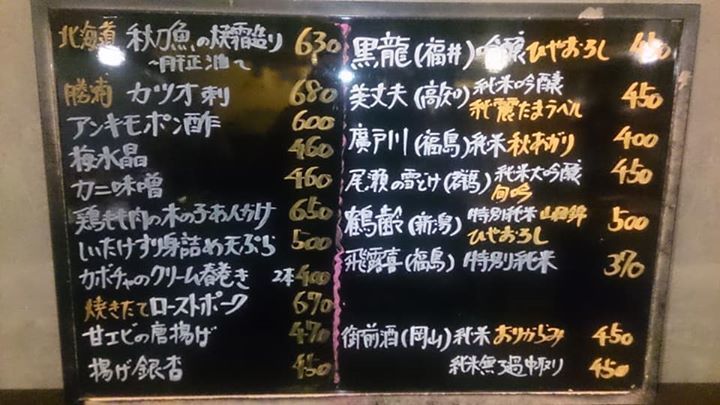 北海道 秋刀魚の焼霜造り 630
〜肝正油〜
勝浦 カツオ刺 680
アンキモポン酢 600
梅水晶 460
カニ味噌 460
鶏もも肉の木の子あんかけ 650
しいたけすり身詰め天ぷら 500
カボチャのクリーム春巻き 2本400
焼きたてローストポーク 670
甘エビの唐揚げ 470
揚げ銀杏 450
黒龍(福井)吟醸 ひやおろし
美丈夫(高知)純米吟醸 450
純麗たまラベル
廣戸川(福島)純米 秋あがり 400
尾瀬の雪どけ(群馬)純米大吟醸 450
旬吟
鶴齢(新潟)特別純米 山田錦 500
ひやおろし
飛露喜(福島)特別純米 370
御前酒(岡山)純米 おりがらみ 450
純米無ろ過中取り 450